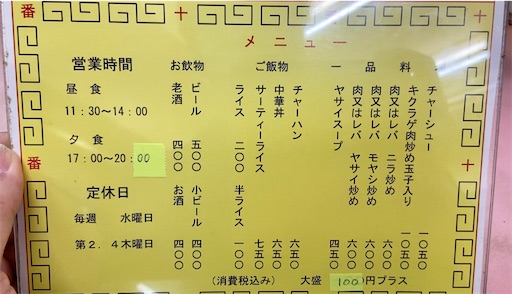 番
番
番
メニュー
営業時間
昼 食
11:30〜14:00
夕 食
17:00〜20:00
定休日
毎週 水曜日
第2.4木曜日
お飲物
ビール 五〇〇
小ビール 四〇〇
老酒 四〇〇
お酒 四〇〇
ご飯物
チャーハン 六五〇
中華丼 六五〇
サーティーライス 七五〇
ライス 二〇〇
半ライス 一〇〇
一 品 料
チャーシュー 一〇五〇
キクラゲ肉炒め玉子入り 一〇五〇
肉又はレバ ニラ炒め 六〇〇
肉又はレバ モヤシ炒め 六〇〇
肉又はレバ ヤサイ炒め 六〇〇
ヤサイスープ 四五〇
(消費税込み) 大盛 100円プラス